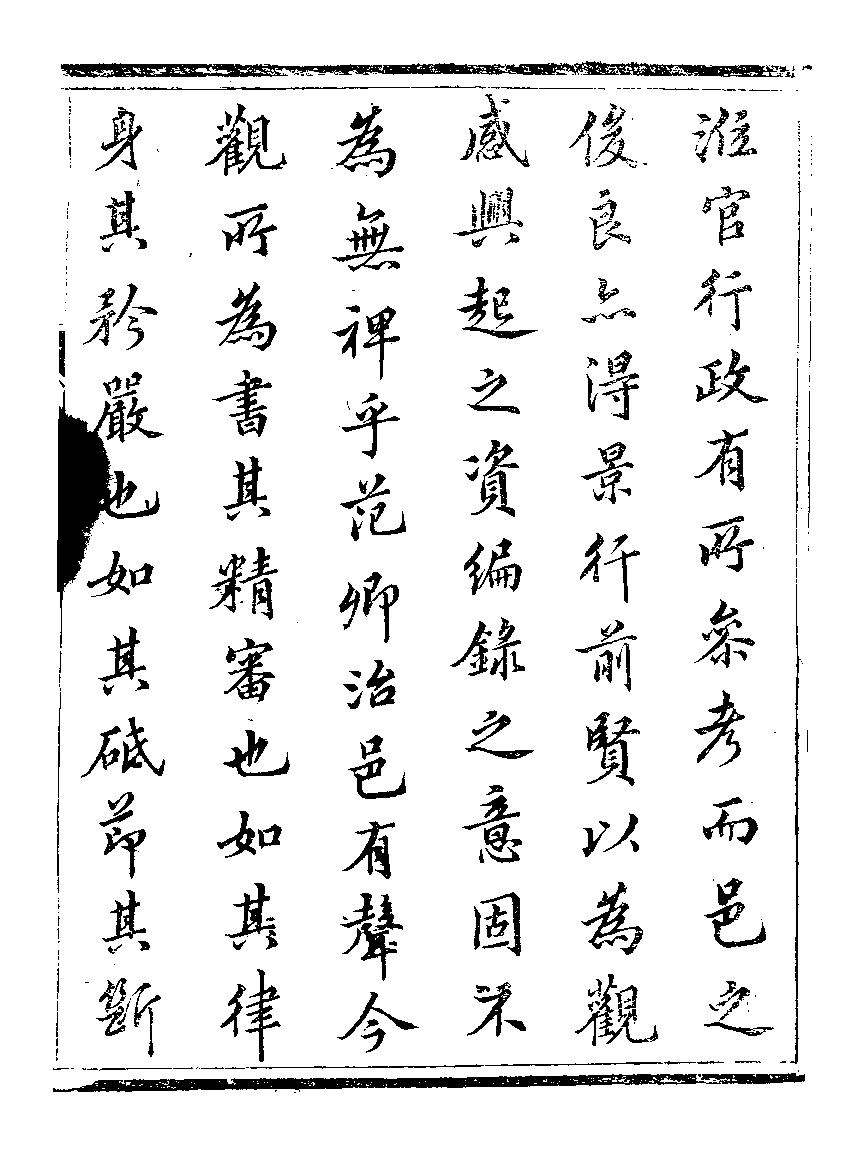 涖官行政有所參考而邑之
俊良亦得景行前賢以為觀
感興起之資編錄之意固不
為無裨乎范卿治邑有聲今
觀所為書其精審也如其律
身其矜嚴也如其砥節其斷